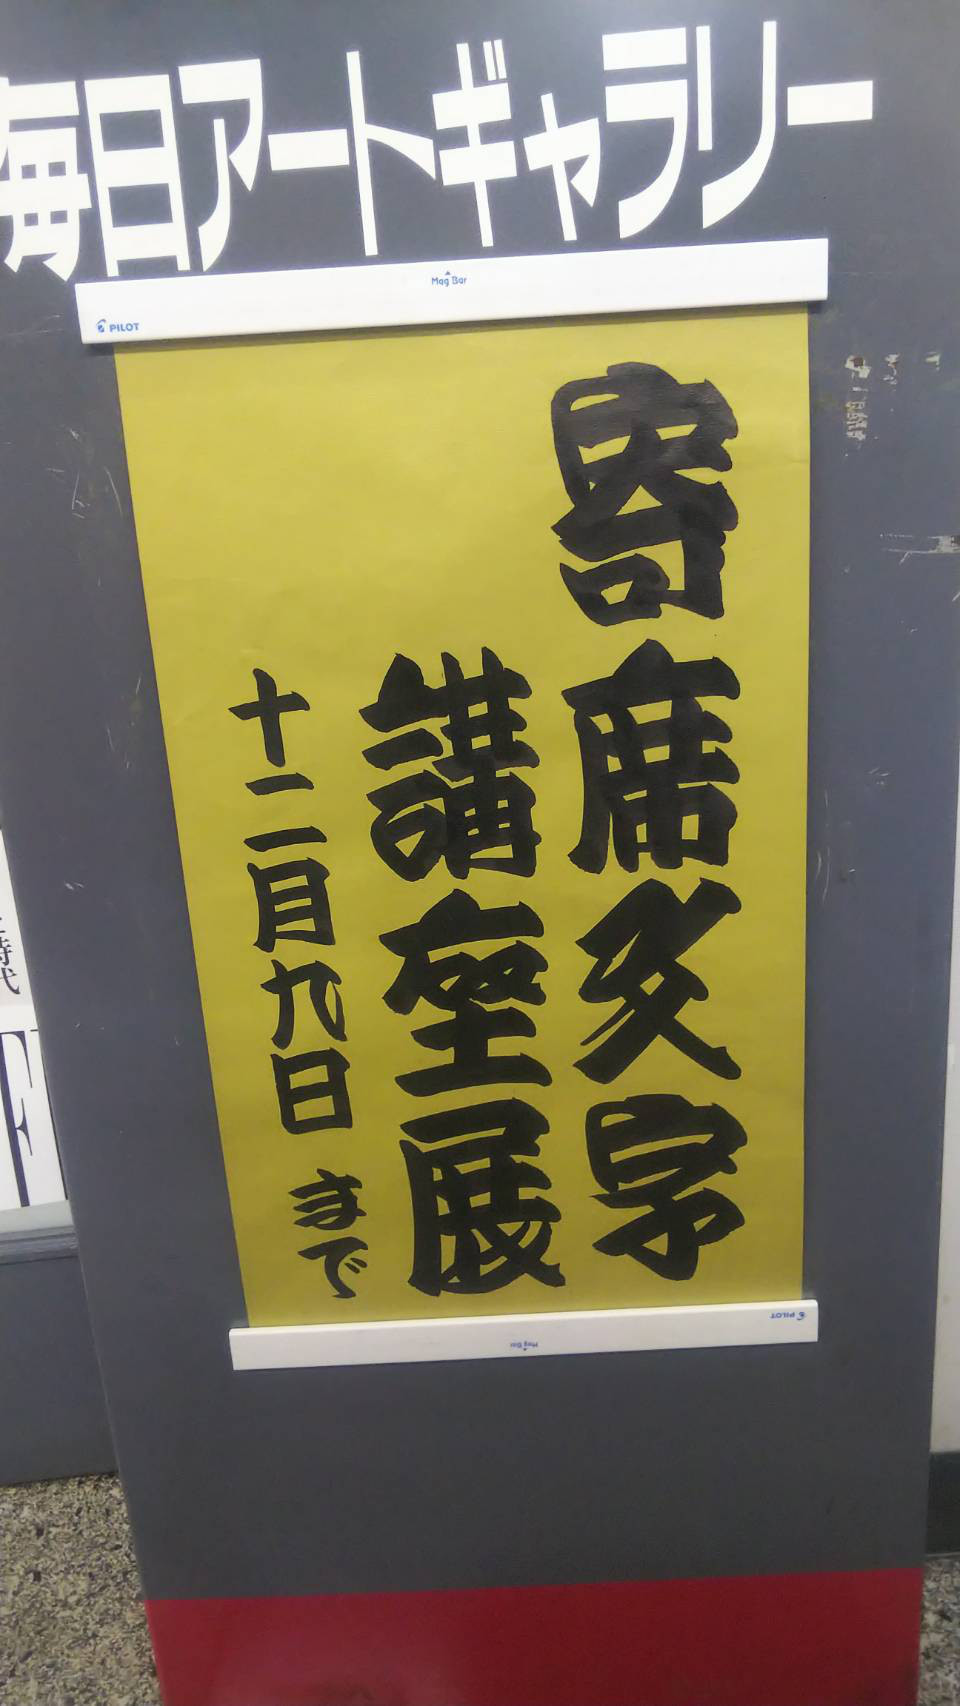 毎日アートギャラリー
Mag Bar
PILOT
寄席文字
講座展
十二月九日 まで
PILOT
Mag Bar
時代